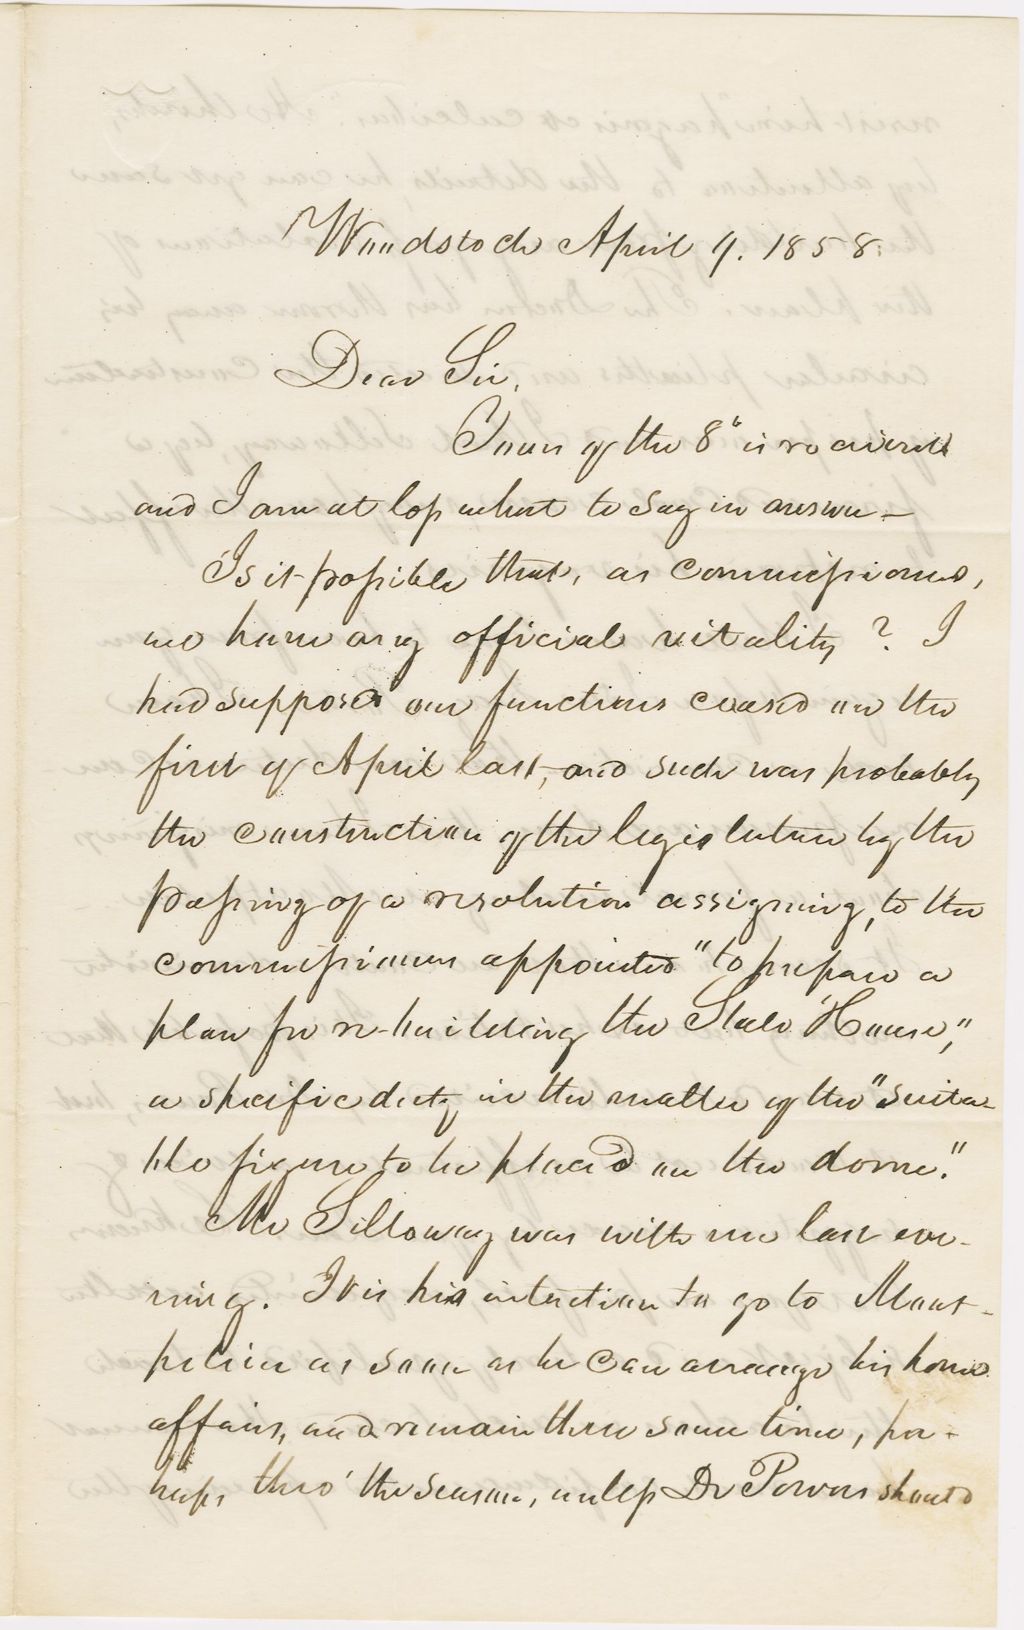 Woodstock April 9. 1858.
Dear Sir,
Yours of the 8" is received
and I am at loss what to say in answer -
Is it possible that, as commissioners,
we have any official vitality? I
had supposed our functions ceased on the
first of April last, and such was probably
the construction of the legislature by the
passing of a resolution assigning, to the
commissioners appointed "to prepare a
plan for re-building the State House",
a specific duty in the matter of the "suita-
ble figure to be placed on the dome."
Mr Silloway was with me last eve-
ning. It is his intention to go to Mont-
pelier as soon as he can arrange his home
affairs, and remain there some time, per-
haps thro' the season, unless Dr Powers should